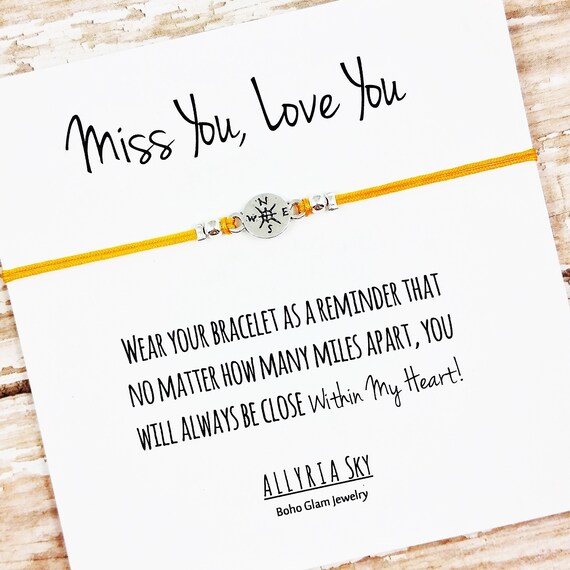 Miss You, Love You
N
W E
S
WEAR YOUR BRACELET AS A REMINDER THAT
NO MATTER HOW MANY MILES APART, YOU
WILL ALWAYS BE CLOSE Within My Heart!
ALLYRIA SKY
Boho Glam Jewelry